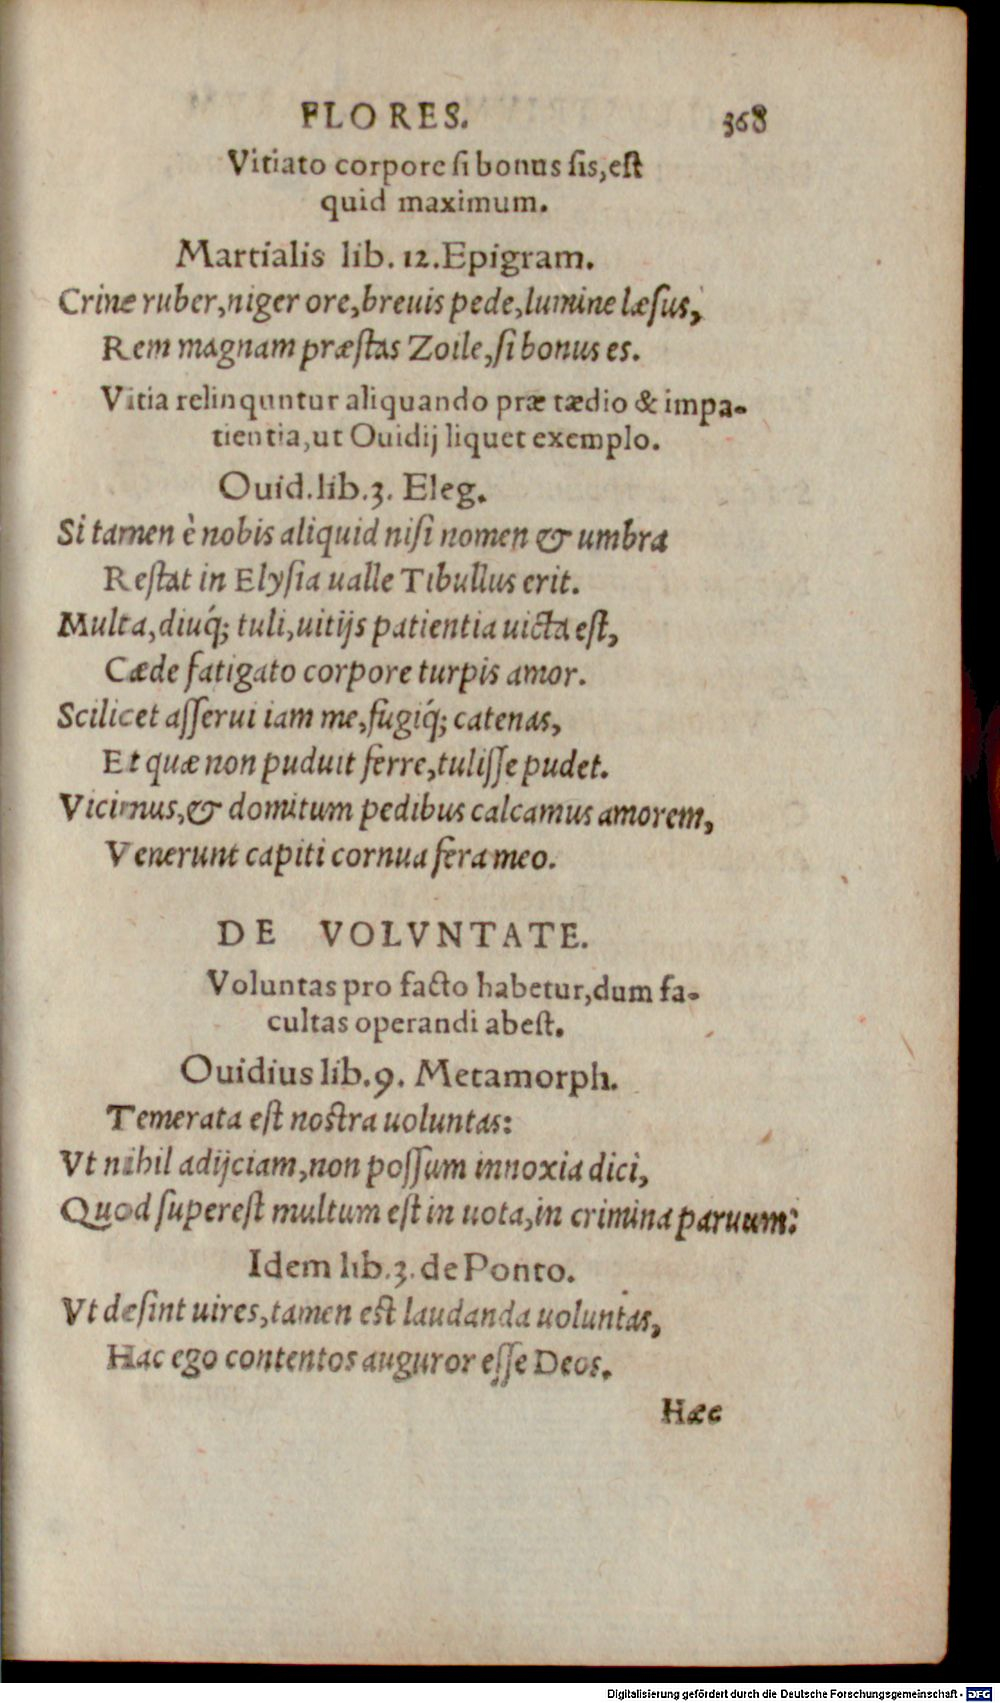 FLORES. 368
Vitiato corpore si bonus sis, est
quid maximum.
Martialis lib. 12. Epigram.
Crine ruber, niger ore, breuis pede, lumine læsus,
Rem magnam præstas Zoile, si bonus es.
Vitia relinquntur aliquando præ tædio & impa-
tientia, ut Ouidij liquet exemplo.
Ouid. lib. 3. Eleg.
Si tamen è nobis aliquid nisi nomen & umbra
Restat in Elysia ualle Tibullus erit.
Multa, diuq́; tuli, uitijs patientia uicta est,
Cæde fatigato corpore turpis amor.
Scilicet asserui iam me, fugiq́; catenas,
Et quæ non puduit ferre, tulisse pudet.
Vicimus, & domitum pedibus calcamus amorem,
Venerunt capiti cornua fera meo.
DE VOLVNTATE.
Voluntas pro facto habetur, dum fa-
cultas operandi abest.
Ouidius lib. 9. Metamorph.
Temerata est nostra uoluntas:
Vt nihil adijciam, non possum innoxia dici,
Quod superest multum est in uota, in crimina paruum:
Idem lib. 3. de Ponto.
Vt desint uires, tamen est laudanda uoluntas,
Hac ego contentos auguror esse Deos.
Hæc
Digitalisierung gefördert durch die Deutsche Forschungsgemeinschaft - DFG